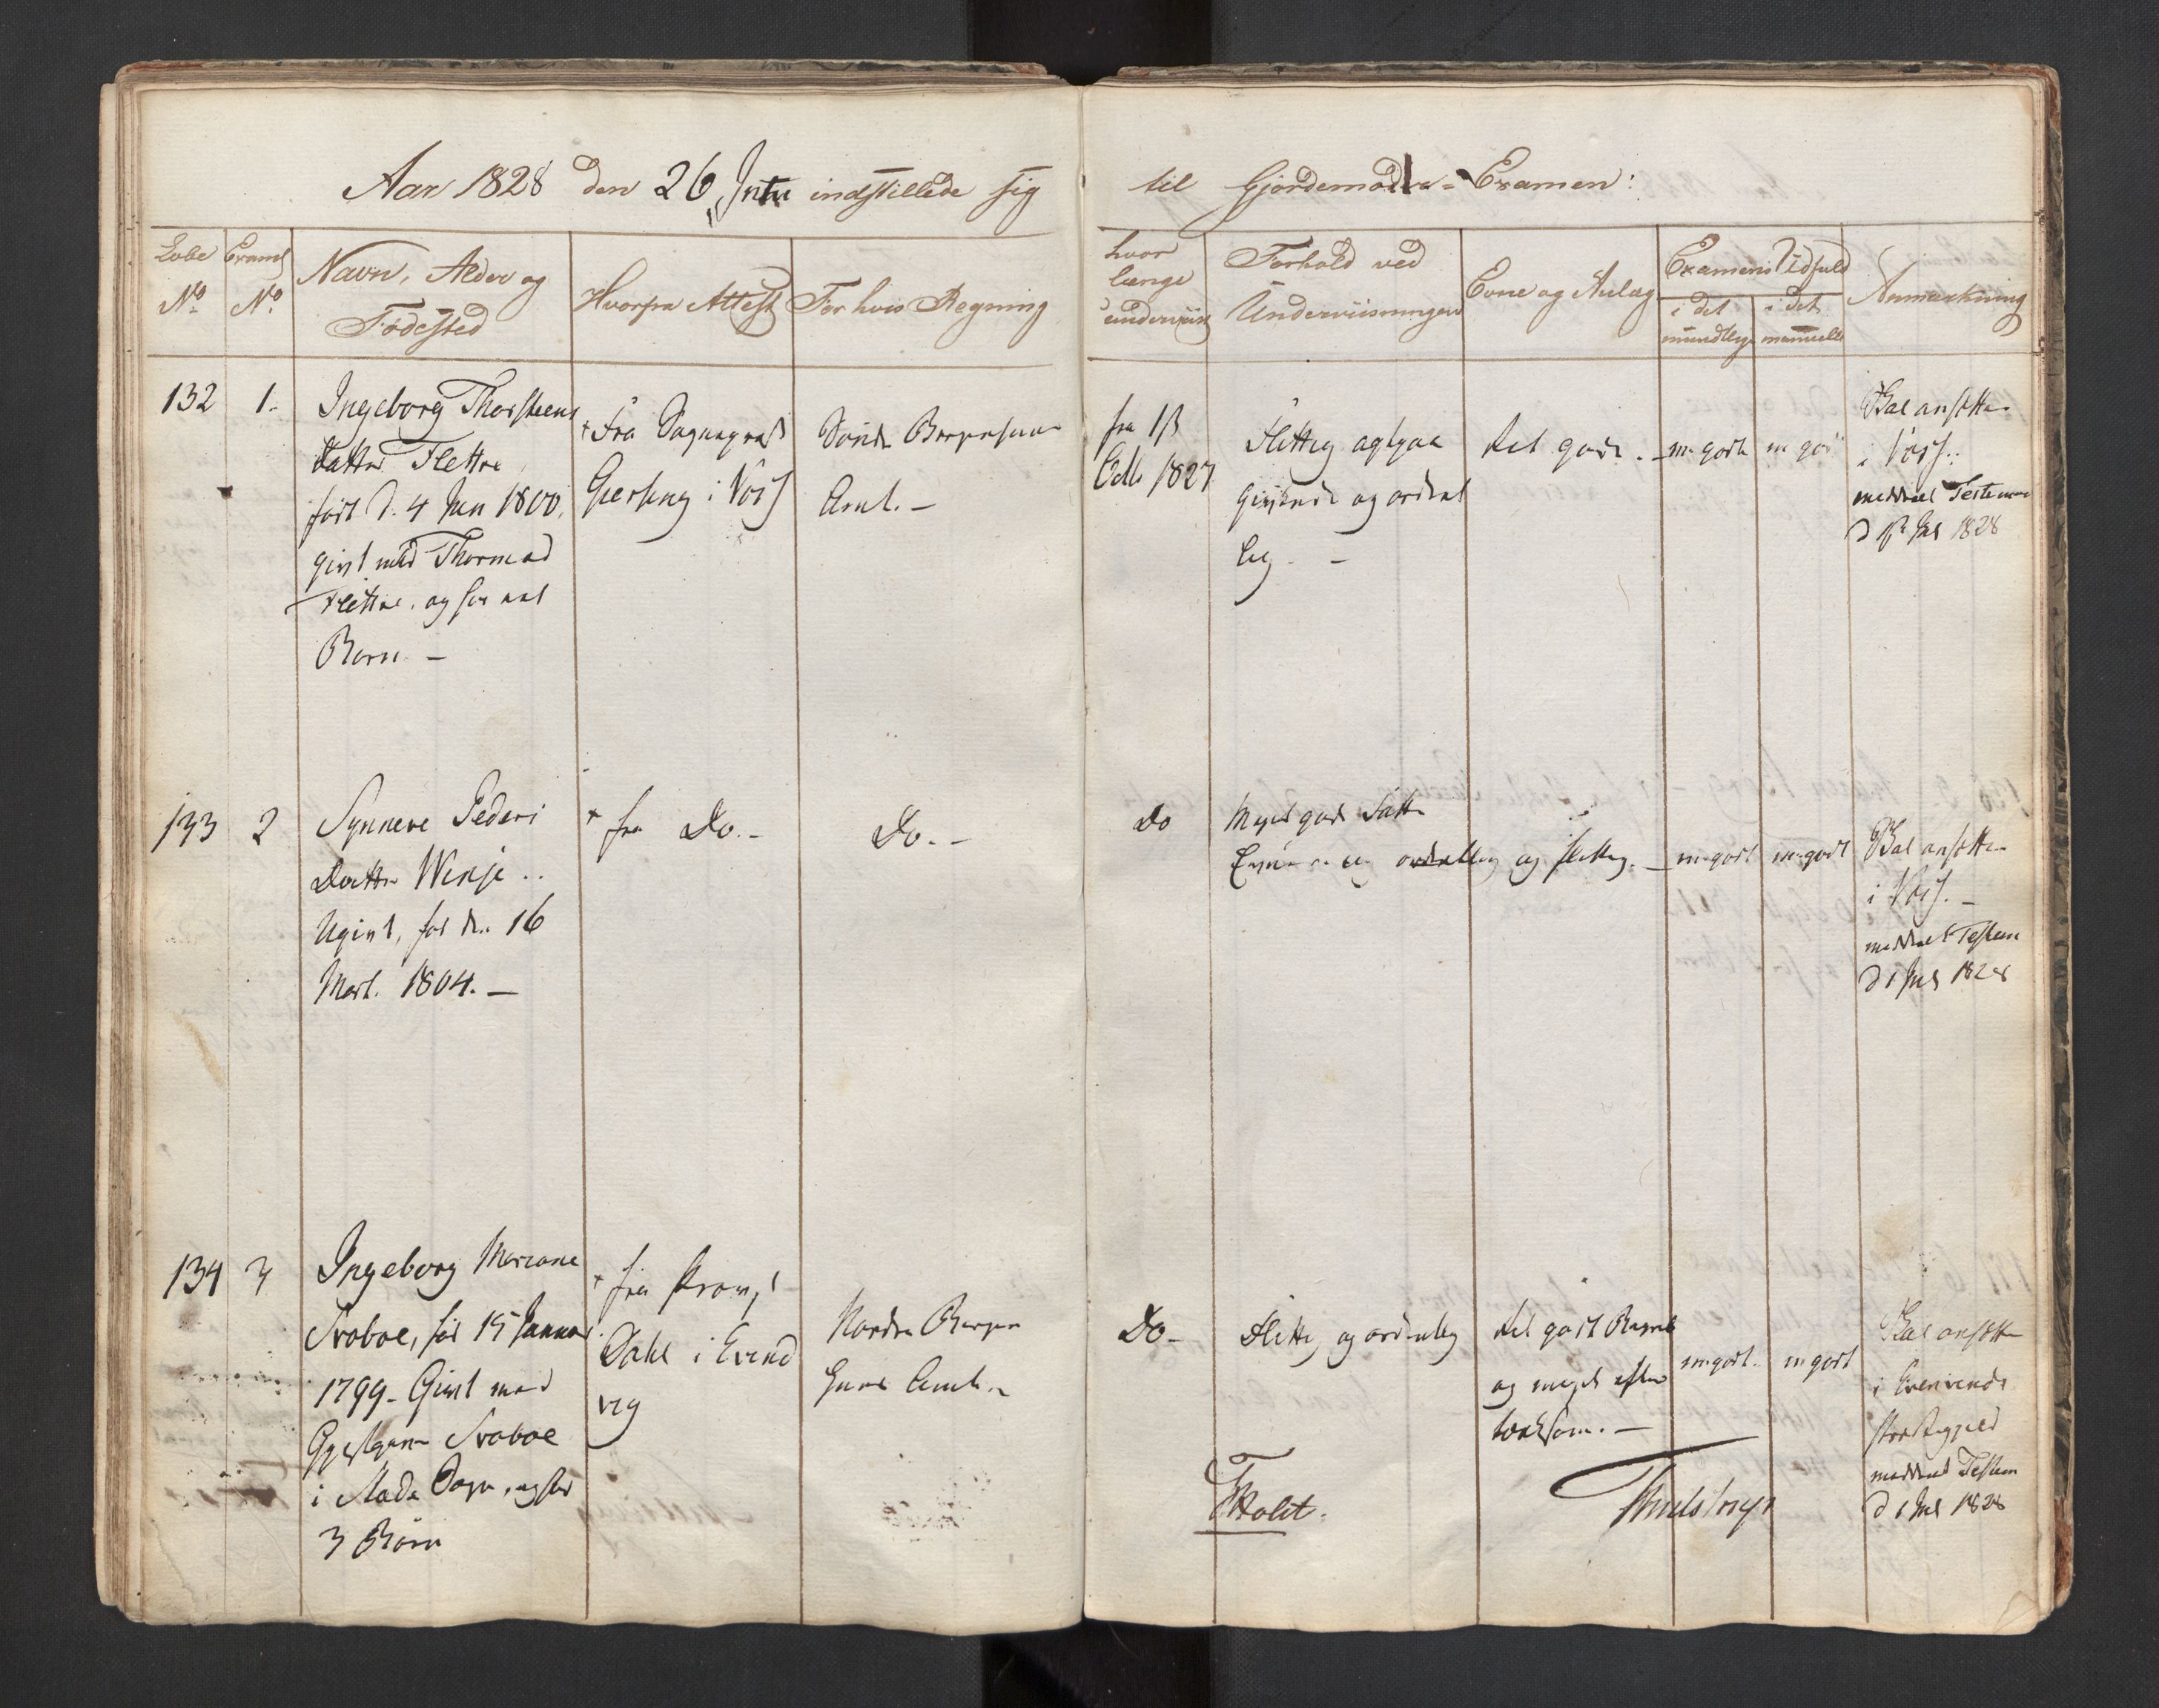 Aar 1828 den 26 Juni indstillede sig
til Gjordemoder-Examen:
Løbe
No
Exam
No
Navn, Alder og
Fødested
Hvorfra Attest
For hvis Regning
hvor
længe
underviist
Forhold ved
Underviisningen
Evne og Anlæg
Examens Udfald
i det
mundtlige
i det
manuelle
Anmærkning
132
1.
Ingeborg Thorsteens
Datter Flettre
født d. 4 Jan 1800.
givt med Thormod
Flettre, og har
Børn. –
Fra Sognepræst
i Vors
Søndre Bergenhuus
Amt. –
fra 1ste
Octb 1827
Flittig agtpaa
givende og ordent
lig. –
Ret gode. –
m. godt
m god
Skal ansættes
i Vors.
meddeelt Testimon
d 1ste Jul 1828
133
2
Synneve Peders
Datter Winje ..
Ugivt, fød den 16
Mart. 1804. –
fra Do. –
Do. –
Do
Meget gode
ordentlig og flittig. –
m. godt
m. godt
Skal ansættes
i Vors. –
meddeelt Testim
d 1 Jul 1828
134
3
Ingeborg Mariane
Svaboe, fød 15 Januar
1799 – Givt med
Svaboe
i og har
3 Børn
fra Provst
Dahl i Evind
vig
Nordre Bergen
huus Amt. –
Do –
Flittig og ordentlig
Ret godt
og meget efter
tænksom. –
m. godt.
m godt
Skal ansættes
i Evenvends
Præstegjeld
meddeelt Testim
d 1 Jul 1828
Holdt.
Thulstrup